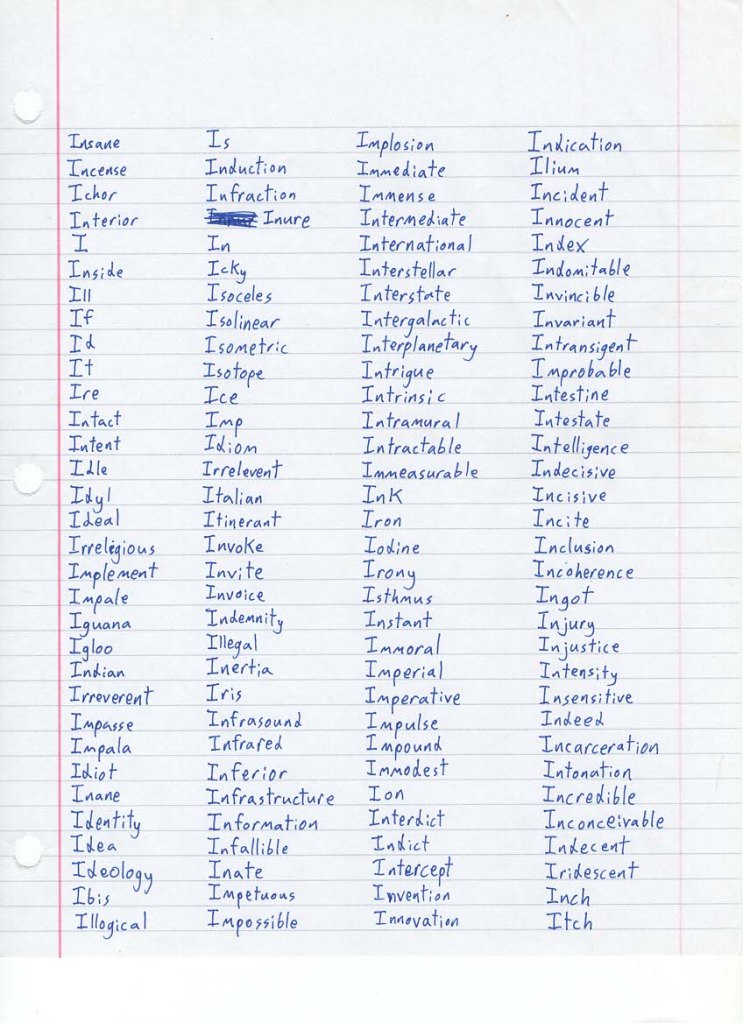 Insane Is Implosion Indication
Incense Induction Immediate Ilium
Ichor Infraction Immense Incident
Interior Inure Intermediate Innocent
I In International Index
Inside Icky Interstellar Indomitable
Ill Isoceles Interstate Invincible
If Isolinear Intergalactic Invariant
Id Isometric Interplanetary Intransigent
It Isotope Intrigue Improbable
Ire Ice Intrinsic Intestine
Intact Imp Intramural Intestate
Intent Idiom Intractable Intelligence
Idle Irrelevent Immeasurable Indecisive
Idyl Italian Ink Incisive
Ideal Itinerant Iron Incite
Irreligious Invoke Iodine Inclusion
Implement Invite Irony Incoherence
Impale Invoice Isthmus Ingot
Iguana Indemnity Instant Injury
Igloo Illegal Immoral Injustice
Indian Inertia Imperial Intensity
Irreverent Iris Imperative Insensitive
Impasse Infrasound Impulse Indeed
Impala Infrared Impound Incarceration
Idiot Inferior Immodest Intonation
Inane Infrastructure Ion Incredible
Identity Information Interdict Inconceivable
Idea Infallible Indict Indecent
Ideology Inate Intercept Iridescent
Ibis Impetuous Invention Inch
Illogical Impossible Innovation Itch